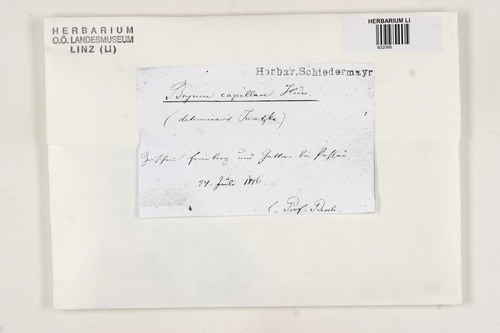 HERBARIUM
O.Ö. LANDESMUSEUM
LINZ (LI)
HERBARIUM LI
932066
Herbar, Schiedermayr
Bryum capillare Hdw.
(determinavit Juratzka)
Zwischen Freinberg und Hattern bei Passau
24. Juli 18
l. Prof.